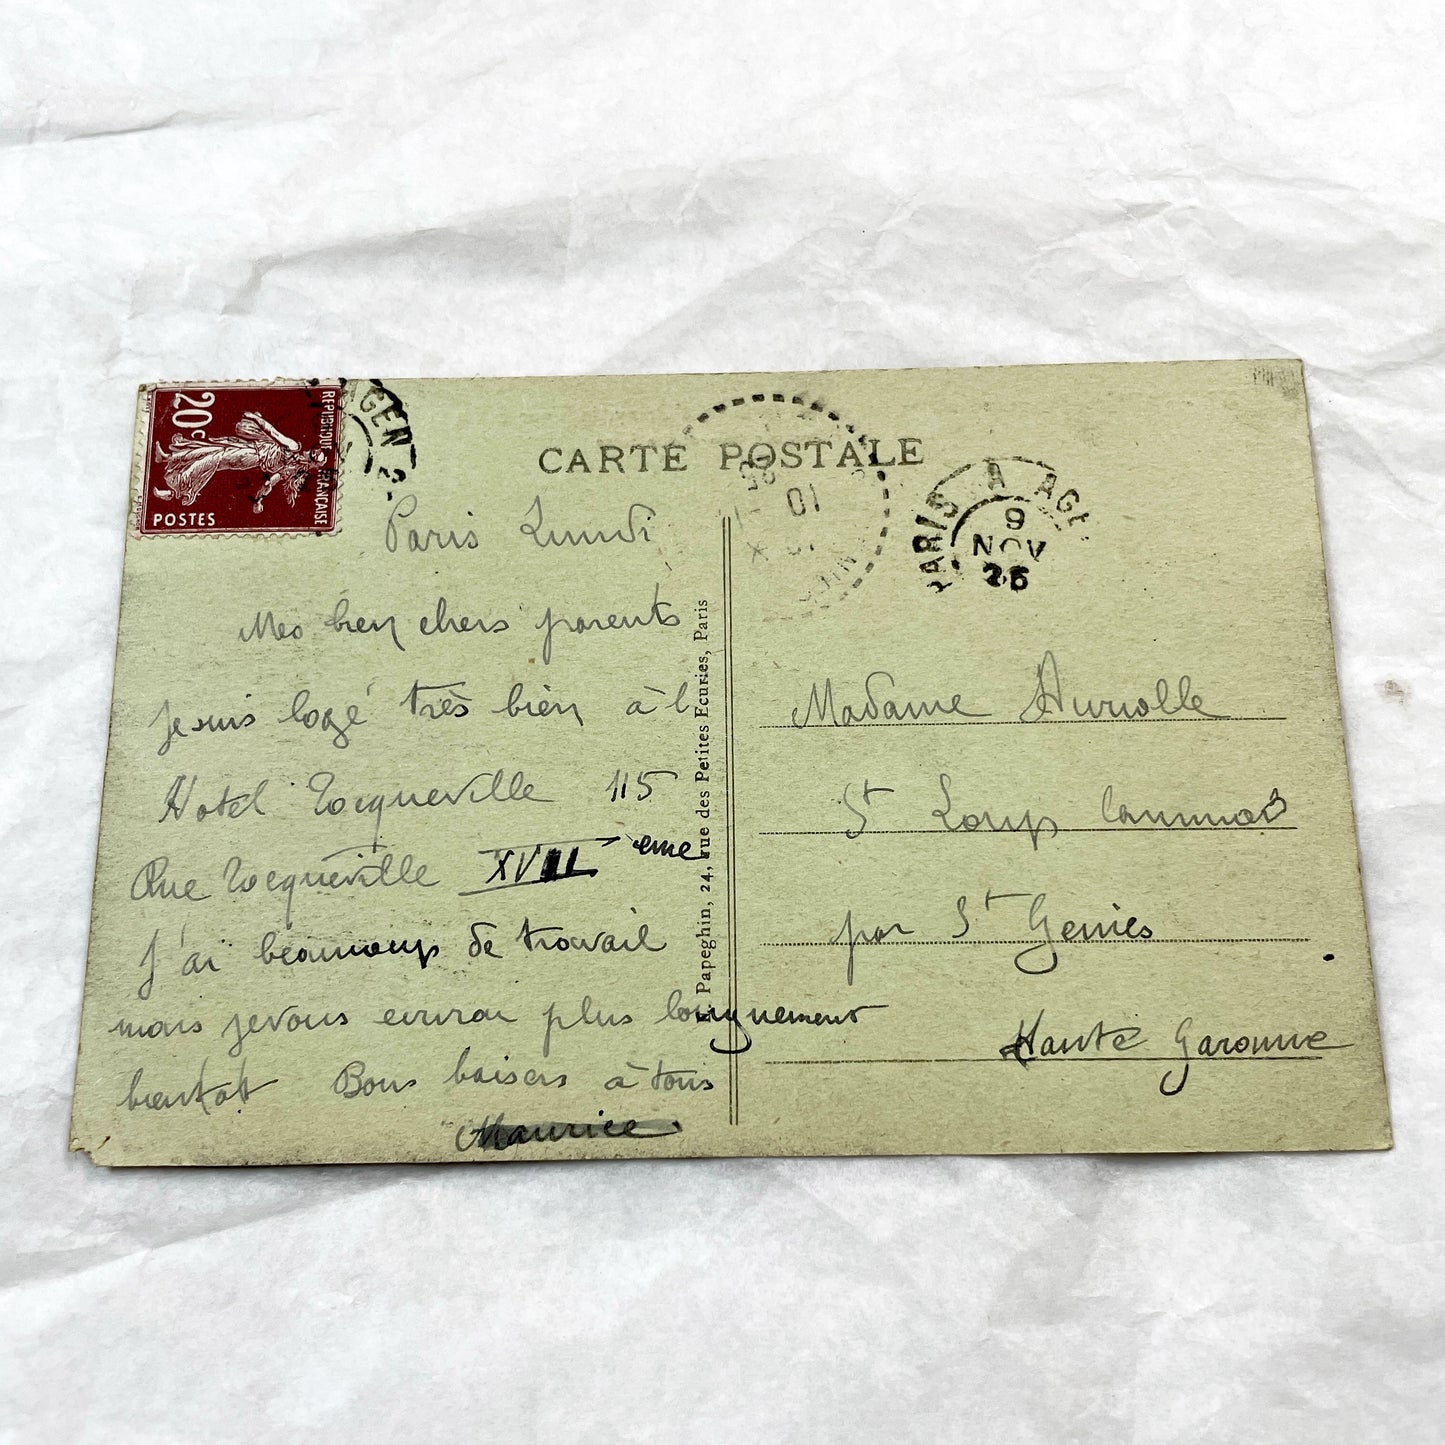 20c
REPUBLIQUE FRANÇAISE
POSTES
AGEN
CARTE POSTALE
10
PARIS A AGE
9
NOV
26
Paris Lundi
Mes bien chers parents
Je suis logé très bien à l
Hotel Tocqueville 115
Rue Tocqueville XVII eme
J'ai beaucoup de travail
mais je vous ecrirai plus longuement
bientot Bons baisers à tous
Maurice
Papeghin, 24, rue des Petites Ecuries, Paris
Madame Auriolle
St Loup Cammas
par St Genies
Haute Garonne